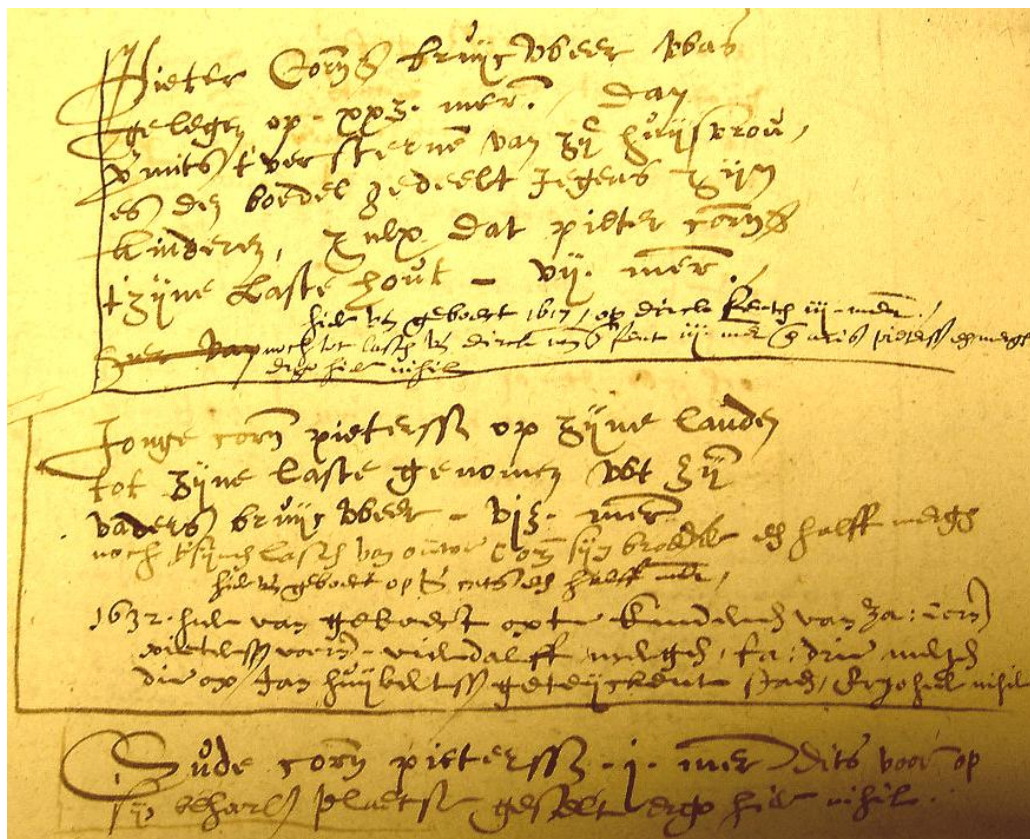 Pieter Cornss bruijcweer was
gelegen op. xxʒ. mer. dan
mits t'versterven van zijn huijsvrou,
es den boedel gedeelt jegens zijn
kinderen, zulx dat pieter cornss
tzijne laste hout - vij. mer.
hier van geboect 1617, op dirck iij. mer.,
noch tot lasten van dirck iij. mer aris pieterss
ergo hier nihil
Jonge corn pieterssz op zijne landen
tot zijne laste genomen wt zijn
vaders bruijcweer - vijʒ. mer
noch t'sijnen lasten van ouwe Corn sijn broeder een halff mergen
hier van geboect op een halff mer,
1632. hier van geboect opte kinderen van Za: corn
pieterss voorn - vierdalff mergen, fa: drie mergen
die op Jan huijbertss geteijckent staen, Ergo hier nihil
Oude corn pieterssz. j. mer dits voor op
plaetse gestelt ergo hier nihil.